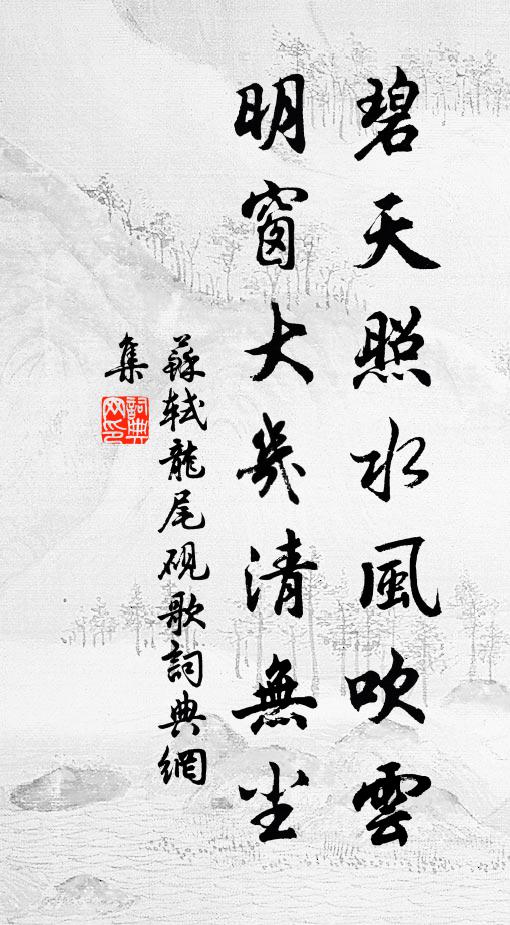 碧天照水風吹雲
明窗大几清無尘
蘇軾龍尾硯歌詞典網
集
詞典網印